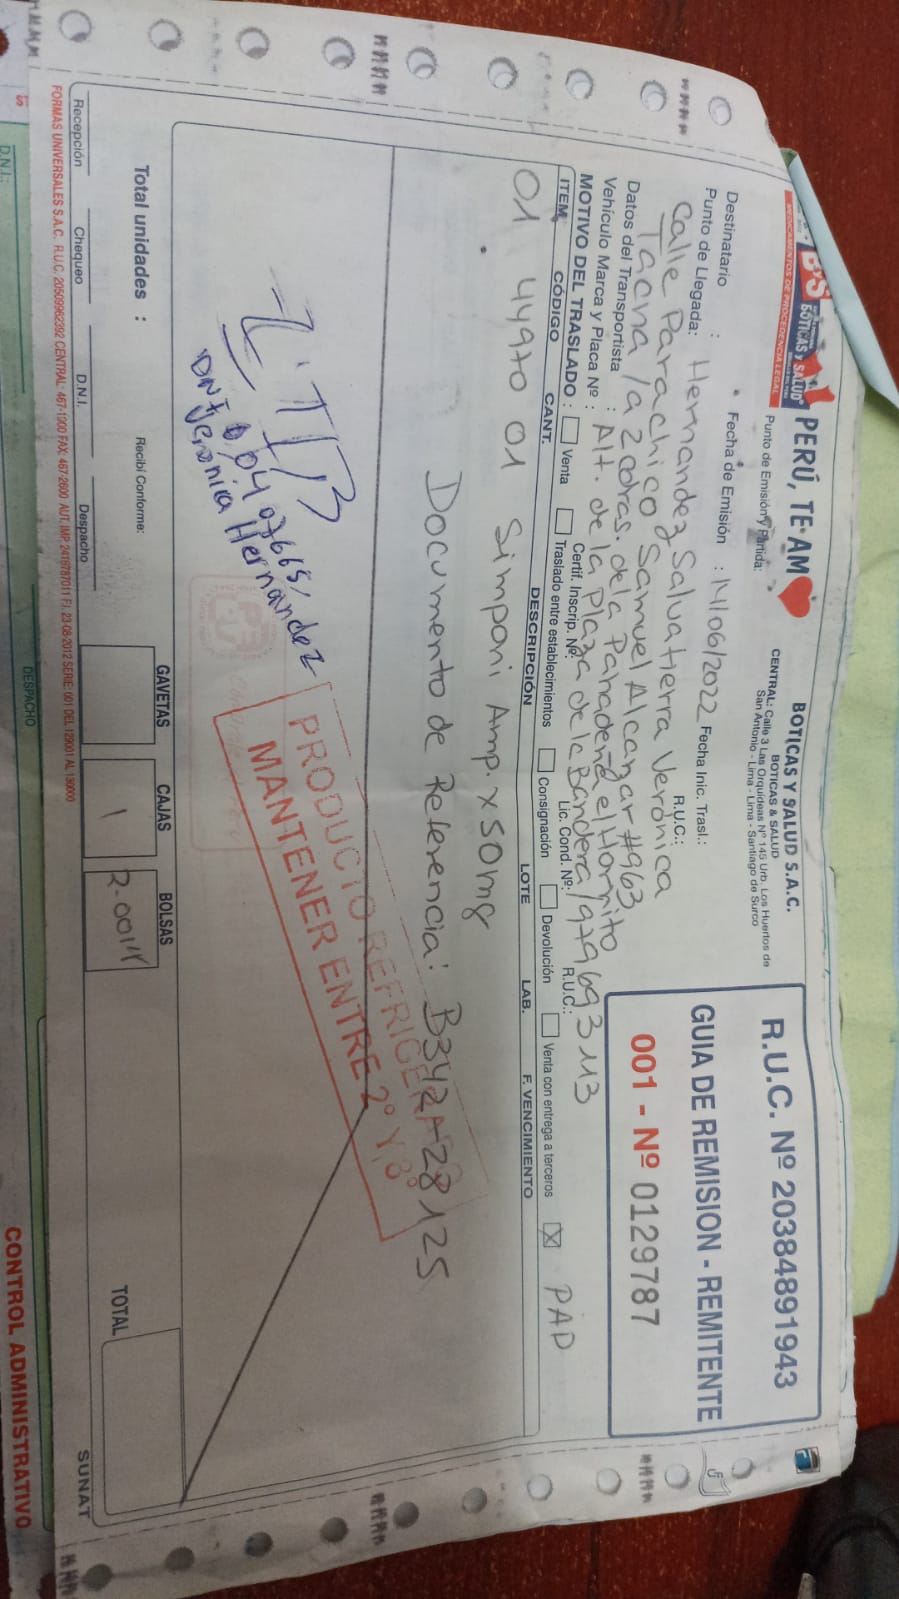 B'S
BOTICAS Y SALUD
MEDICAMENTOS DE PROCEDENCIA LEGAL
PERÚ, TE AM
BOTICAS Y SALUD S.A.C.
BOTICAS & SALUD
CENTRAL: Calle 3 Las Orquideas Nº 145 Urb. Los Huertos de
San Antonio - Lima - Lima - Santiago de Surco
Punto de Emisión y Partida:
R.U.C. Nº 20384891943
GUIA DE REMISION - REMITENTE
001 - Nº 0129787
Fecha de Emisión : 14/06/2022 Fecha Inic. Trasl.:
Destinatario : Hernandez Salvatierra Verónica R.U.C.:
Punto de Llegada:
Calle Parachico Samuel Alcanzar #963
Tacna /a 2 cdras. de la Panadería el Hornito
Datos del Transportista : R.U.C.:
Alt. de la Plaza de la Bandera/979693113
Vehículo Marca y Placa Nº : Certif. Inscrip. Nº: Lic. Cond. Nº:
MOTIVO DEL TRASLADO : Venta Traslado entre establecimientos Consignación Devolución Venta con entrega a terceros X PAD
ITEM CÓDIGO CANT. DESCRIPCIÓN LOTE LAB. F. VENCIMIENTO
01 44970 01 Simponi Amp. x 50mg
Documento de Referencia: B342A-28125
PRODUCTO REFRIGERADO
MANTENER ENTRE 2° Y 8°
DNI 00407665
Hernandez
Total unidades :
Recibí Conforme:
GAVETAS CAJAS BOLSAS
1 2-00114
TOTAL
Recepción Chequeo D.N.I. Despacho
SUNAT
FORMAS UNIVERSALES S.A.C. R.U.C. 20509962392 CENTRAL: 467-1900 FAX: 467-2600 AUT. IMP. 2416787011 F.I. 23-08-2012 SERIE: 001 DEL 129001 AL 130000
DESPACHO
CONTROL ADMINISTRATIVO
D.N.I.: